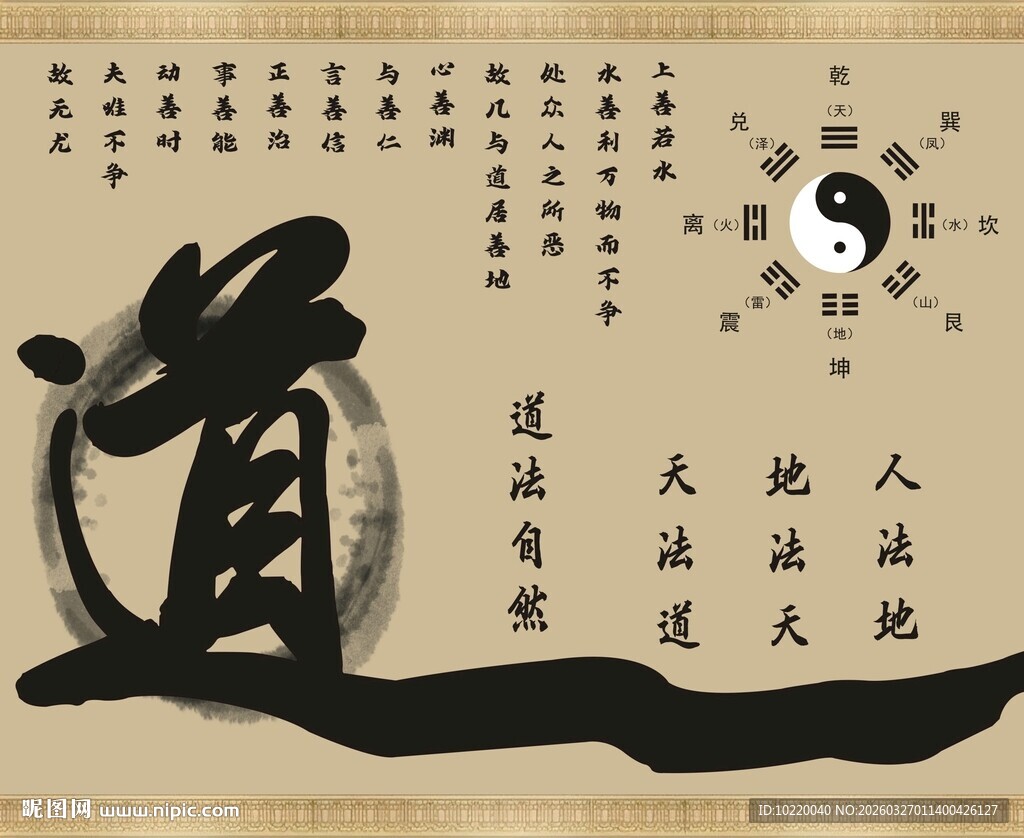 乾
（天）
巽
（凤）
（水）坎
（山）
艮
（地）
坤
（雷）
震
离（火）
兑
（泽）
上善若水
水善利万物而不争
处众人之所恶
故几与道居善地
心善渊
与善仁
言善信
正善治
事善能
动善时
夫唯不争
故无尤
人法地
地法天
天法道
道法自然
道
昵图网 www.nipic.com
ID:10220040 NO:20260327011400426127